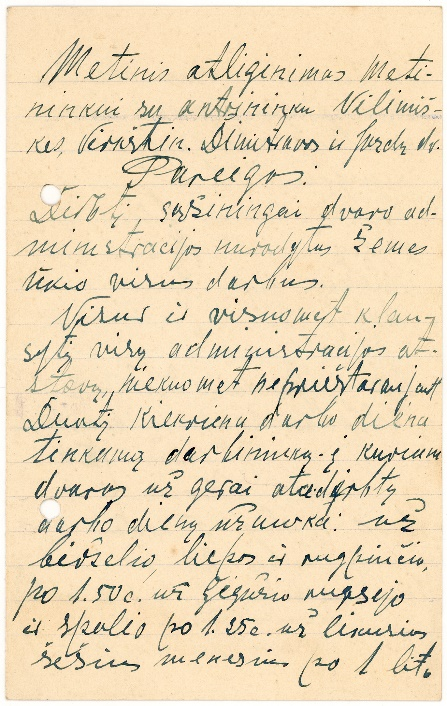 Metinis atliginimas meti-
ninkui su antrininku Vilimiš-
kės, Dimitravos ir dv.
Pareigos:
Dirbtų, sąžiningai dvaro ad-
ministracijos nurodytus žemės
ūkio visus darbus.
Visur ir visuomet klau-
sytų visų administracijos at-
stovų, niekuomet neprieštaraujant
Duotų kiekvieną darbo dieną
tinkamą darbininką-ę kuriam
dvaras už gerai atadirbtų
darbo dieną užmoka: už
birželio, liepos ir rugpiučio,
po 1.50c. už gegužio rugsejo
ir spalio po 1.25c. už likusius
šešius menesius po 1 litą